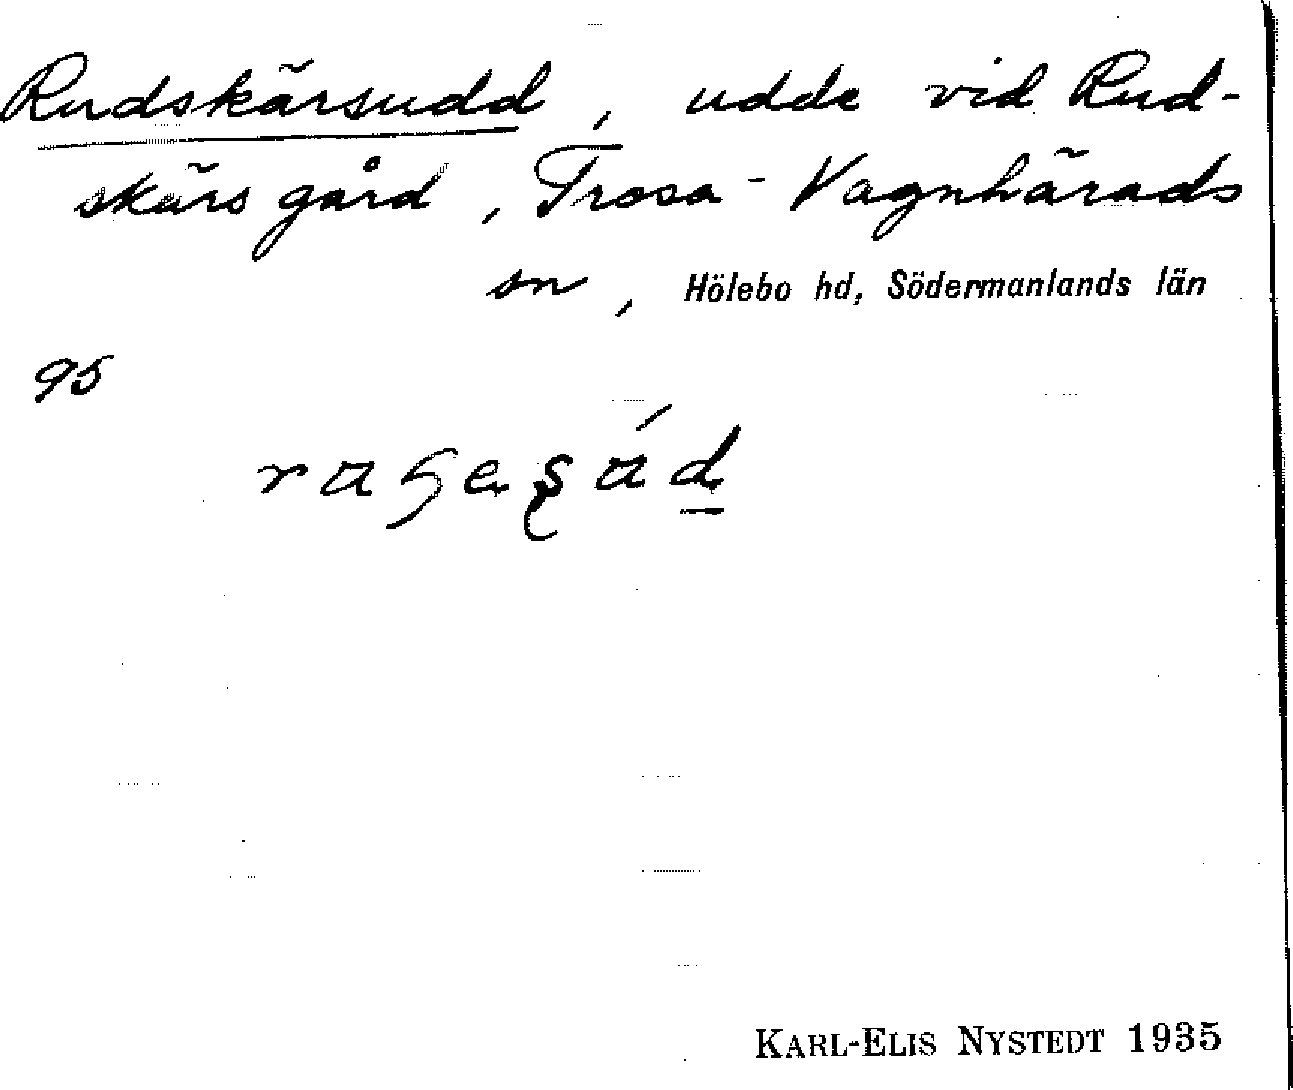 Rudskärsudd, udde vid Rud-
skärs gård, Trosa-Vagnhärads
sn, Hölebo hd, Södermanlands län
95
KARL-ELIS NYSTEDT 1935